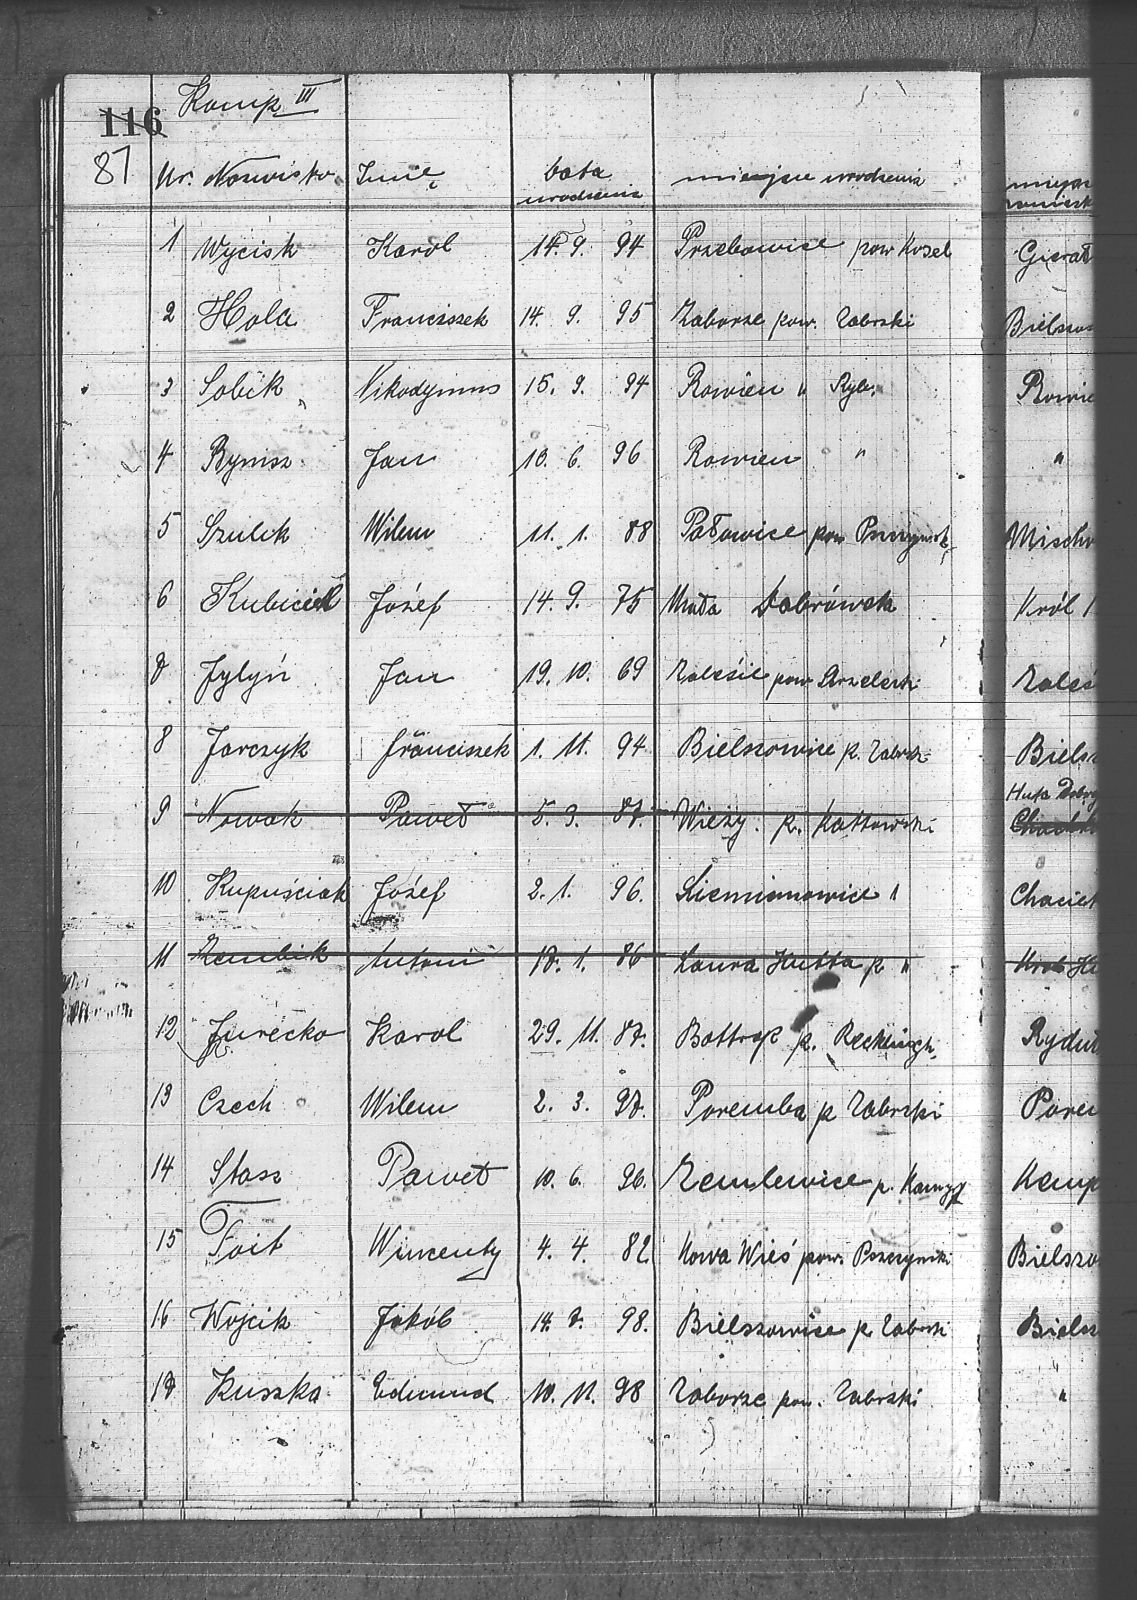 Komp III
116
87
Nr. Nazwisko Imię Data urodzenia miejsce urodzenia
1 Wycisk Karol 14. 9. 94 Przebowice pow Kozel Gierał
2 Hola Franciszek 14. 9. 95 Zaborze pow. Zabrski Bielszo
3 Sobik Nikodymus 15. 9. 94 Rowien " Ryb. Rowie
4 Rymsz Jan 13. 6. 96 Rowien " "
5 Szulik Wilem 11. 1. 88 Pałowice pow
6 Kubiciel Józef 14. 9. 75 Mała Dobrówka Król
7 Jylyń Jan 19. 10. 69 Zaleśie pow Strzelecki Zaleś
8 Jarczyk Franciszek 1. 11. 94 Bielszowice p. Zabrski Biels
Huta
9 Nowak Paweł 5. 3. 87. p. Kattowski
10 Kupuściak Józef 2. 1. 96. Siemianowice "
11 Zembik Antoni 17. 1. 86 Laura Hutta p "
12 Jurecko Karol 29. 11. 87. Bottrop p. Recklingh. Rydu
13 Czech Wilem 2. 3. 97. Poremba p Zabrski Pore
14 Stasz Paweł 10. 6. 96. p. Kemp
15 Foit Wincenty 4. 4. 82 Nowa Wieś pow. Pszczyński Bielszo
16 Wojcik Jakób 14. 7. 98. Bielszowice p. Zabrski Biels
17 Kuszka Edmund 10. 11. 98 Zaborze pow. Zabrski "